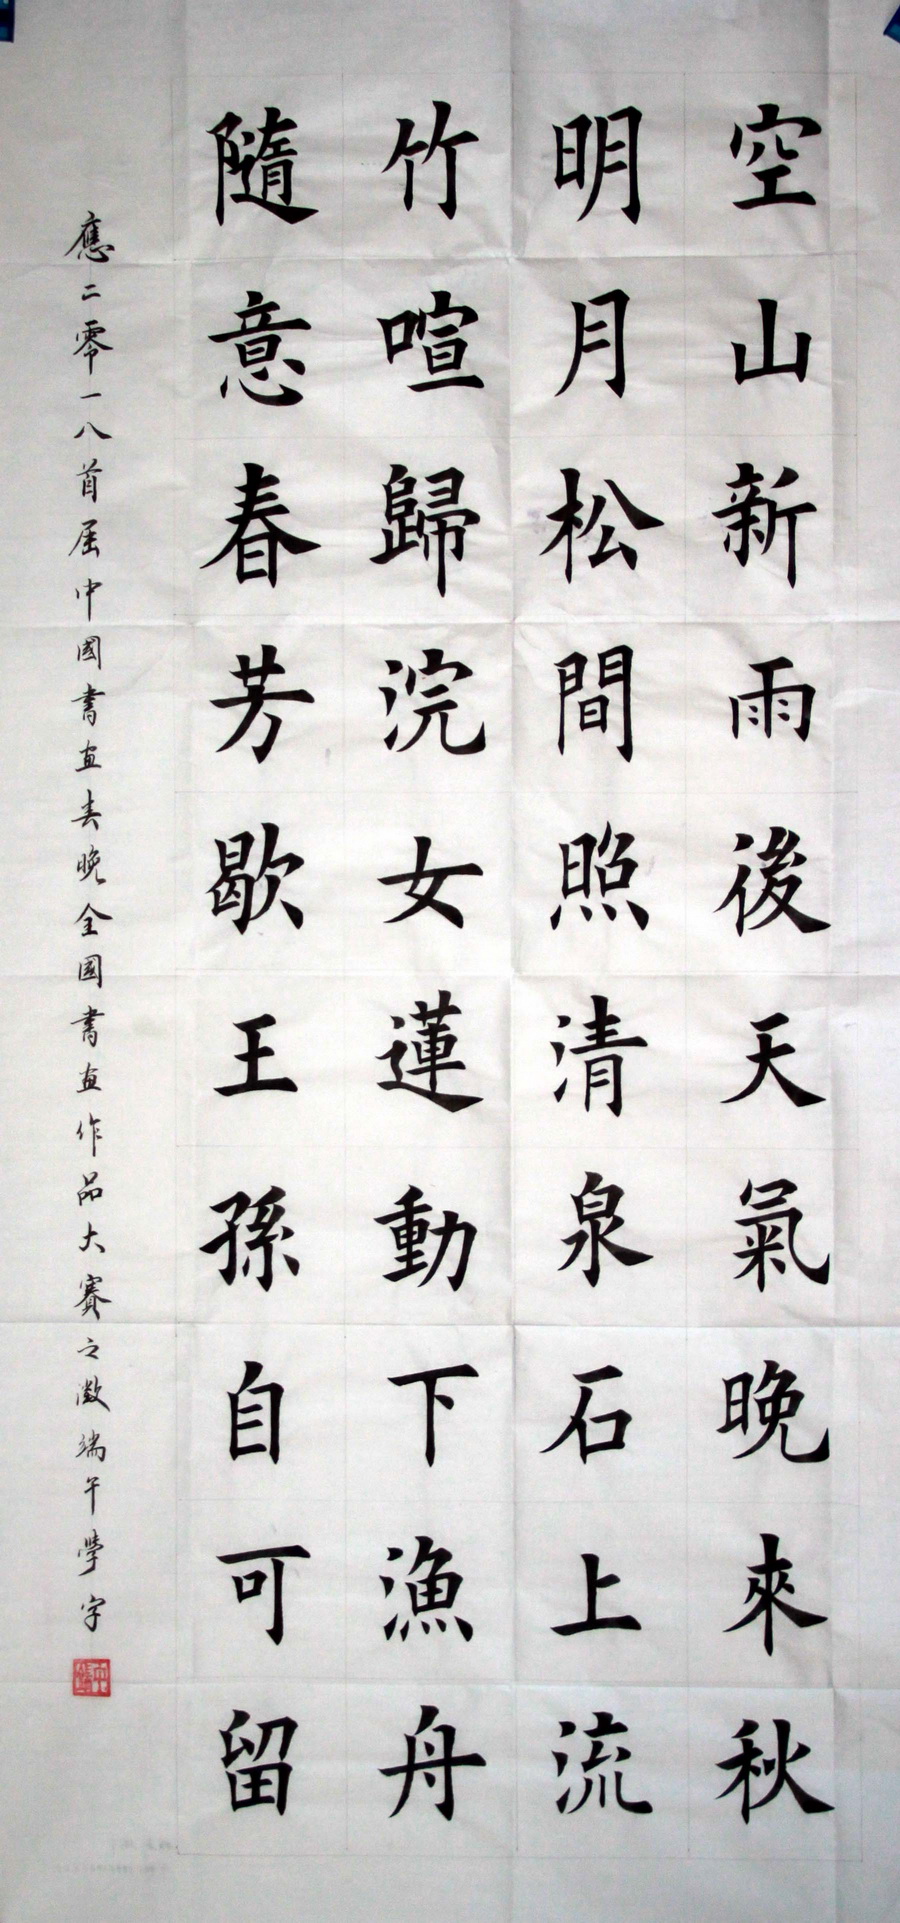 空山新雨後天氣晚來秋
明月松間照清泉石上流
竹喧歸浣女蓮動下漁舟
隨意春芳歇王孫自可留
應二零一八首届中國書画春晚全國書画作品大賽之徵端午學字